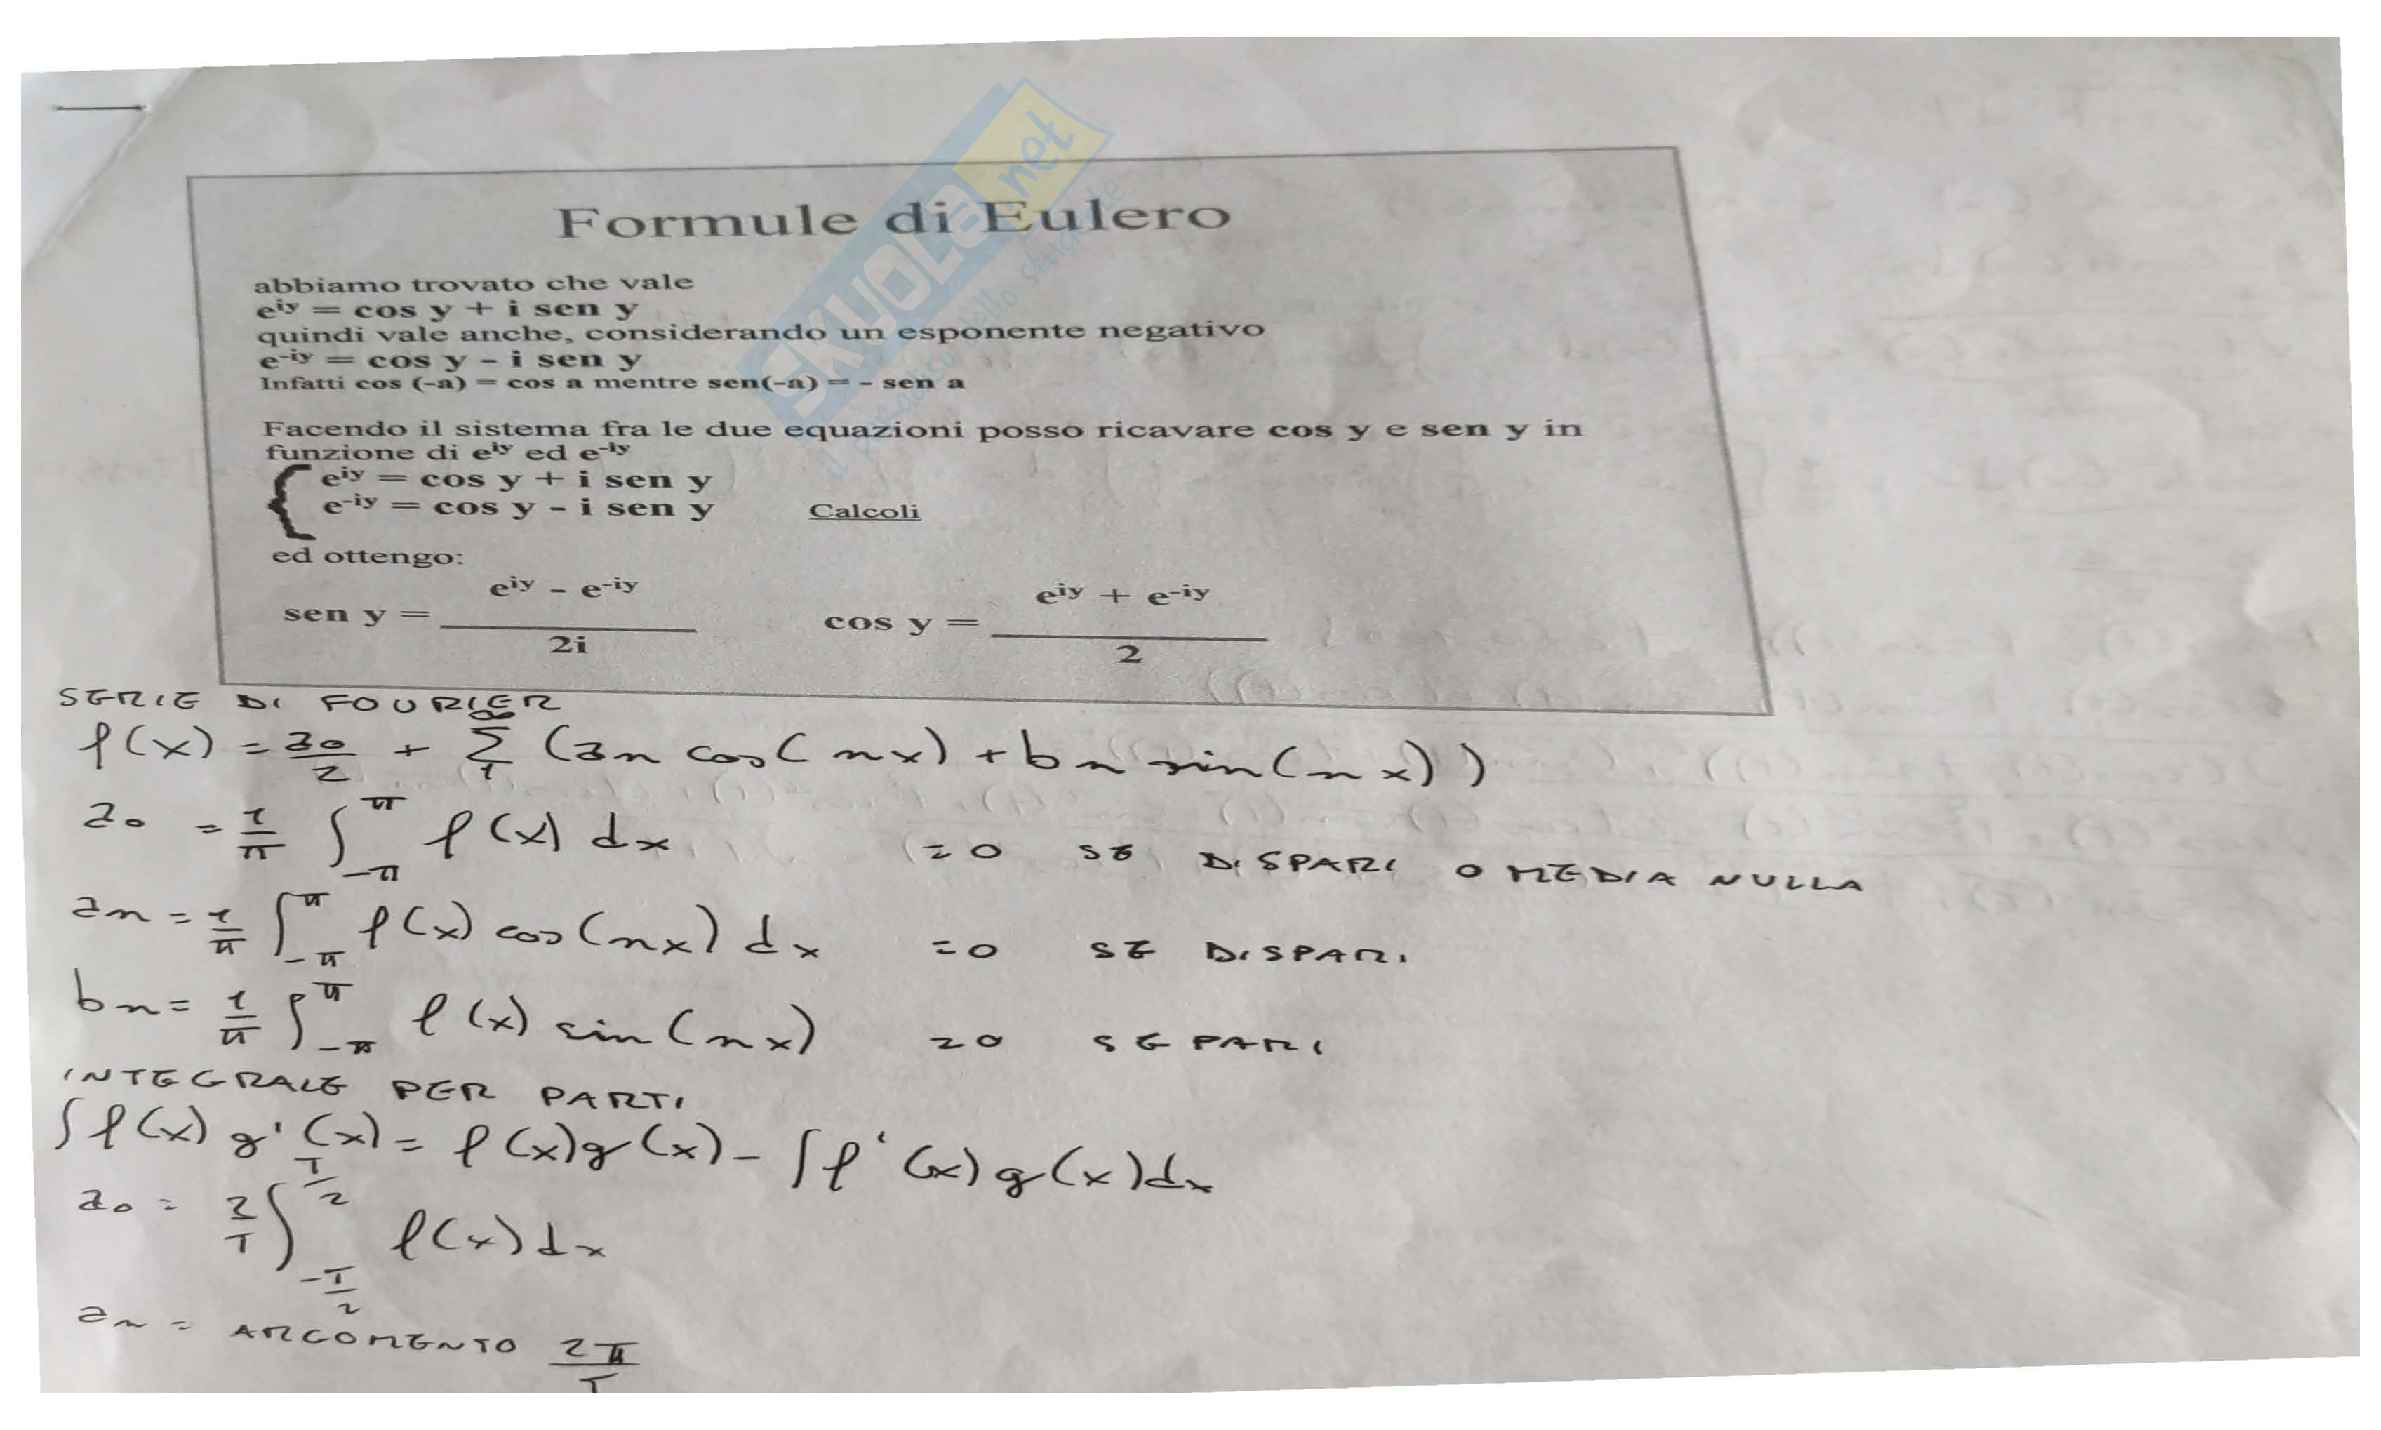 SKUOLA.net
Formule di Eulero
abbiamo trovato che vale
e^iy = cos y + i sen y
quindi vale anche, considerando un esponente negativo
e^-iy = cos y - i sen y
Infatti cos (-a) = cos a mentre sen(-a) = - sen a
Facendo il sistema fra le due equazioni posso ricavare cos y e sen y in
funzione di e^iy ed e^-iy
{ e^iy = cos y + i sen y
e^-iy = cos y - i sen y Calcoli
ed ottengo:
sen y = (e^iy - e^-iy) / 2i cos y = (e^iy + e^-iy) / 2
SERIE DI FOURIER
f(x) = a0/2 + ∑_1^∞ (an cos(nx) + bn sin(nx))
a0 = 1/π ∫_-π^π f(x) dx =0 SE DISPARI O MEDIA NULLA
an = 1/π ∫_-π^π f(x) cos(nx) dx =0 SE DISPARI
bn = 1/π ∫_-π^π f(x) sin(nx) =0 SE PARI
INTEGRALE PER PARTI
∫f(x) g'(x) = f(x)g(x) - ∫f'(x)g(x)dx
a0 = 2/T ∫_-T/2^T/2 f(x)dx
an = ARGOMENTO 2π/T